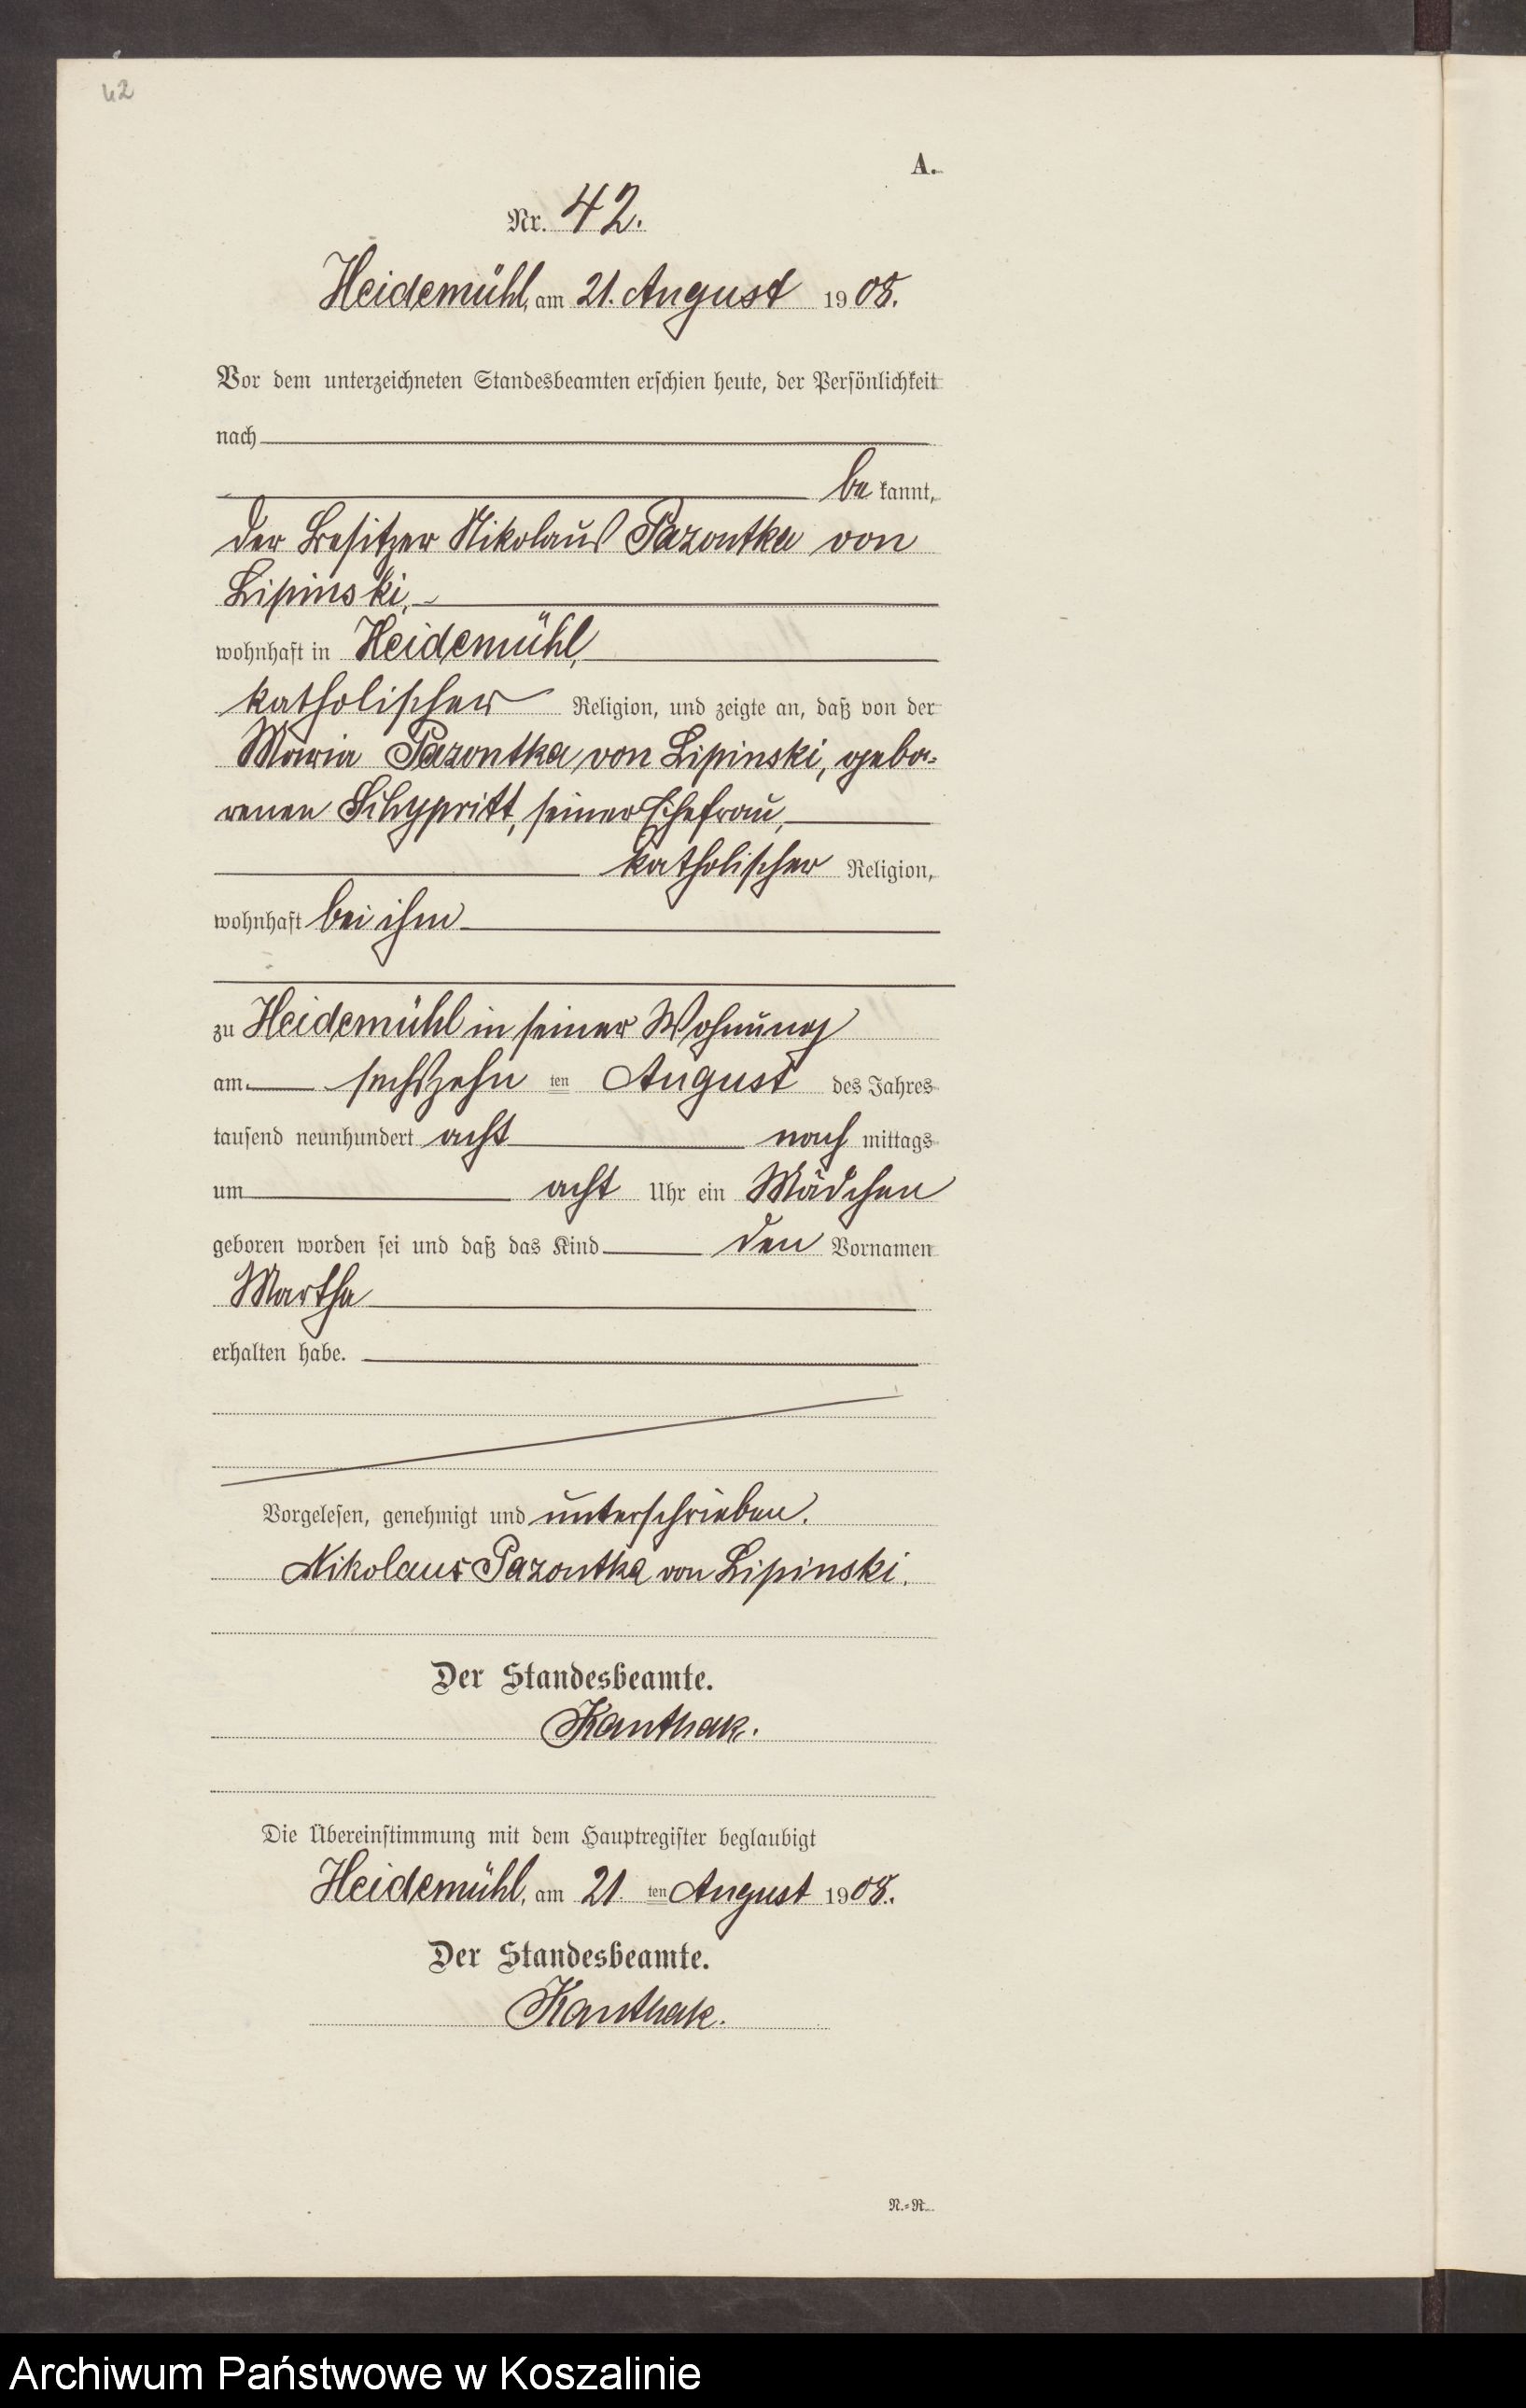 42
A.
Nr. 42.
Heidemühl, am 21. August 1908.
Vor dem unterzeichneten Standesbeamten erschien heute, der Persönlichkeit
nach
be kannt,
der Besitzer Nikolaus Pazontka von
Lipinski,
wohnhaft in Heidemühl,
katholischer Religion, und zeigte an, daß von der
Maria Pazontka von Lipinski, gebo-
renen seiner Ehefrau,
katholischer Religion,
wohnhaft bei ihm
zu Heidemühl in seiner Wohnung
am sechszehn ten August des Jahres
tausend neunhundert acht nach mittags
um acht Uhr ein Mädchen
geboren worden sei und daß das Kind den Vornamen
Martha
erhalten habe.
Vorgelesen, genehmigt und unterschrieben.
Nikolaus Pazontka von Lipinski.
Der Standesbeamte.
Kanthak.
Die Übereinstimmung mit dem Hauptregister beglaubigt
Heidemühl, am 21. ten August 1908.
Der Standesbeamte.
Kanthak.
N.-R.
Archiwum Państwowe w Koszalinie